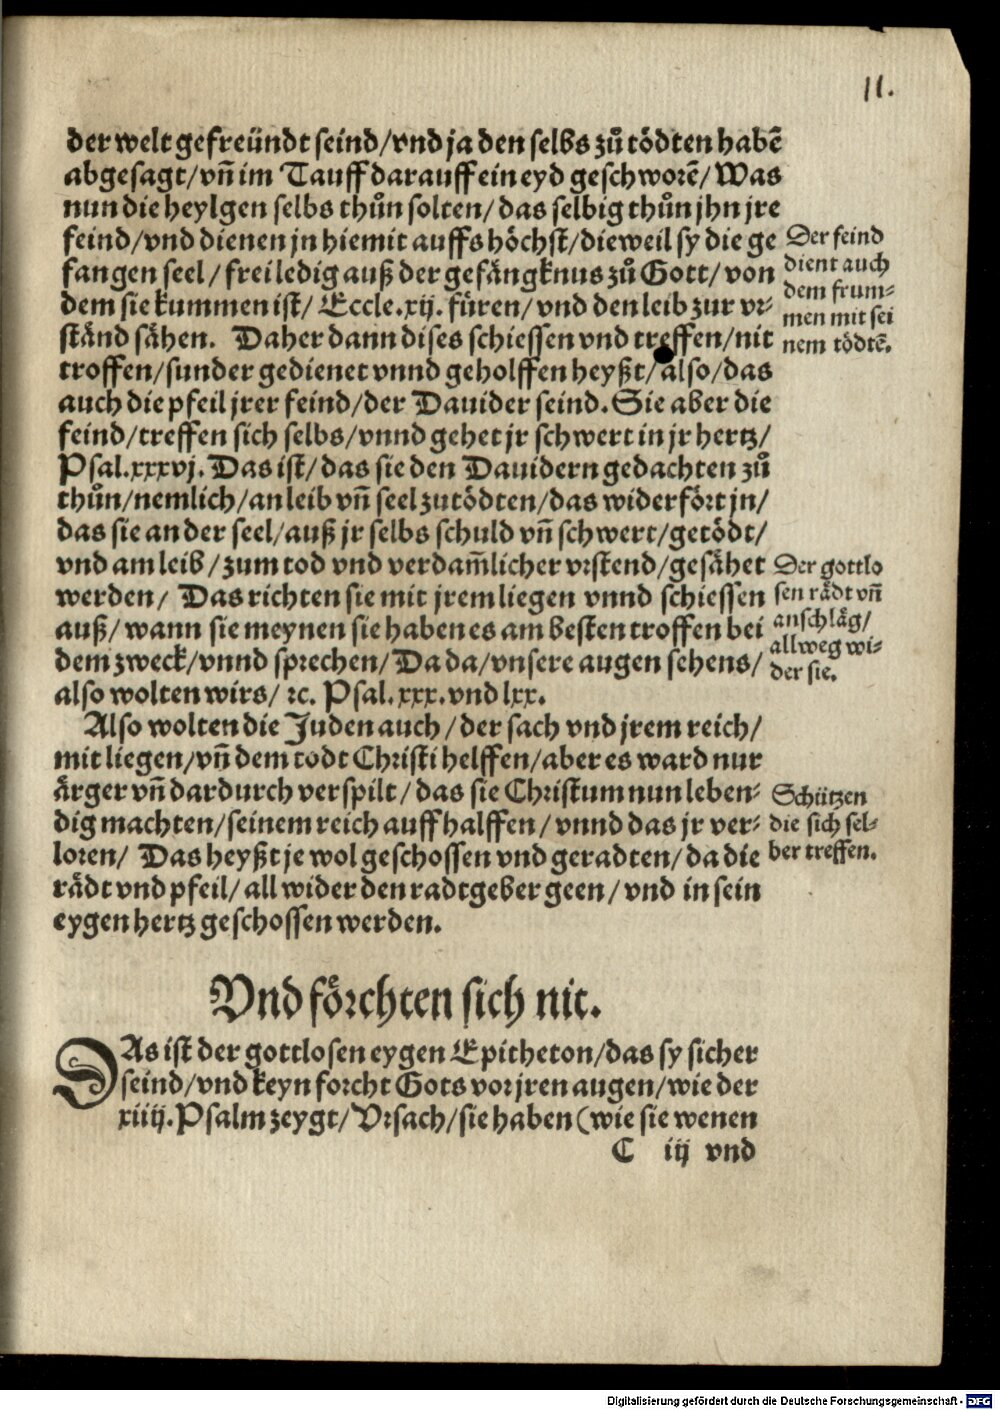 11.
der welt gefreündt seind/vnd ja den selbs zů tödten habẽ
abgesagt/vñ im Tauff darauff ein eyd geschworẽ/Was
nun die heylgen selbs thůn solten/das selbig thůn jhn jre
feind/vnd dienen jn hiemit auffs höchst/dieweil sy die ge
fangen seel/frei ledig auß der gefängknus zů Gott/von
dem sie kummen ist/Eccle.xij. füren/vnd den leib zur vr⸗
ständ sähen. Daher dann dises schiessen vnd treffen/nit
troffen/sunder gedienet vnnd geholffen heyßt/also/das
auch die pfeil jrer feind/der Dauider seind. Sie aber die
feind/treffen sich selbs/vnnd gehet jr schwert in jr hertz/
Psal.xxxvj. Das ist/das sie den Dauidern gedachten zů
thůn/nemlich/an leib vñ seel zutödten/das widerfört jn/
das sie an der seel/auß jr selbs schuld vñ schwert/getödt/
vnd am leib/zum tod vnd verdam̃licher vrstend/gesähet
werden/ Das richten sie mit jrem liegen vnnd schiessen
auß/wann sie meynen sie haben es am besten troffen bei
dem zweck/vnnd sprechen/Da da/vnsere augen sehens/
also wolten wirs/ꝛc. Psal.xxx.vnd lxx.
Der feind
dient auch
dem frum⸗
men mit sei
nem tödtẽ.
Der gottlo
sen rädt vñ
anschläg/
allweg wi⸗
der sie.
Also wolten die Juden auch/der sach vnd jrem reich/
mit liegen/vñ dem todt Christi helffen/aber es ward nur
ärger vñ dardurch verspilt/das sie Christum nun leben⸗
dig machten/seinem reich auff halffen/vnnd das jr ver⸗
loren/ Das heyßt je wol geschossen vnd geradten/da die
rädt vnd pfeil/all wider den radtgeber geen/vnd in sein
eygen hertz geschossen werden.
Schützen
die sich sel⸗
ber treffen.
Vnd förchten sich nit.
DAs ist der gottlosen eygen Epitheton/das sy sicher
seind/vnd keyn forcht Gots vor jren augen/wie der
xiiij. Psalm zeygt/Vrsach/sie haben (wie sie wenen
C iij vnd
Digitalisierung gefördert durch die Deutsche Forschungsgemeinschaft - DFG